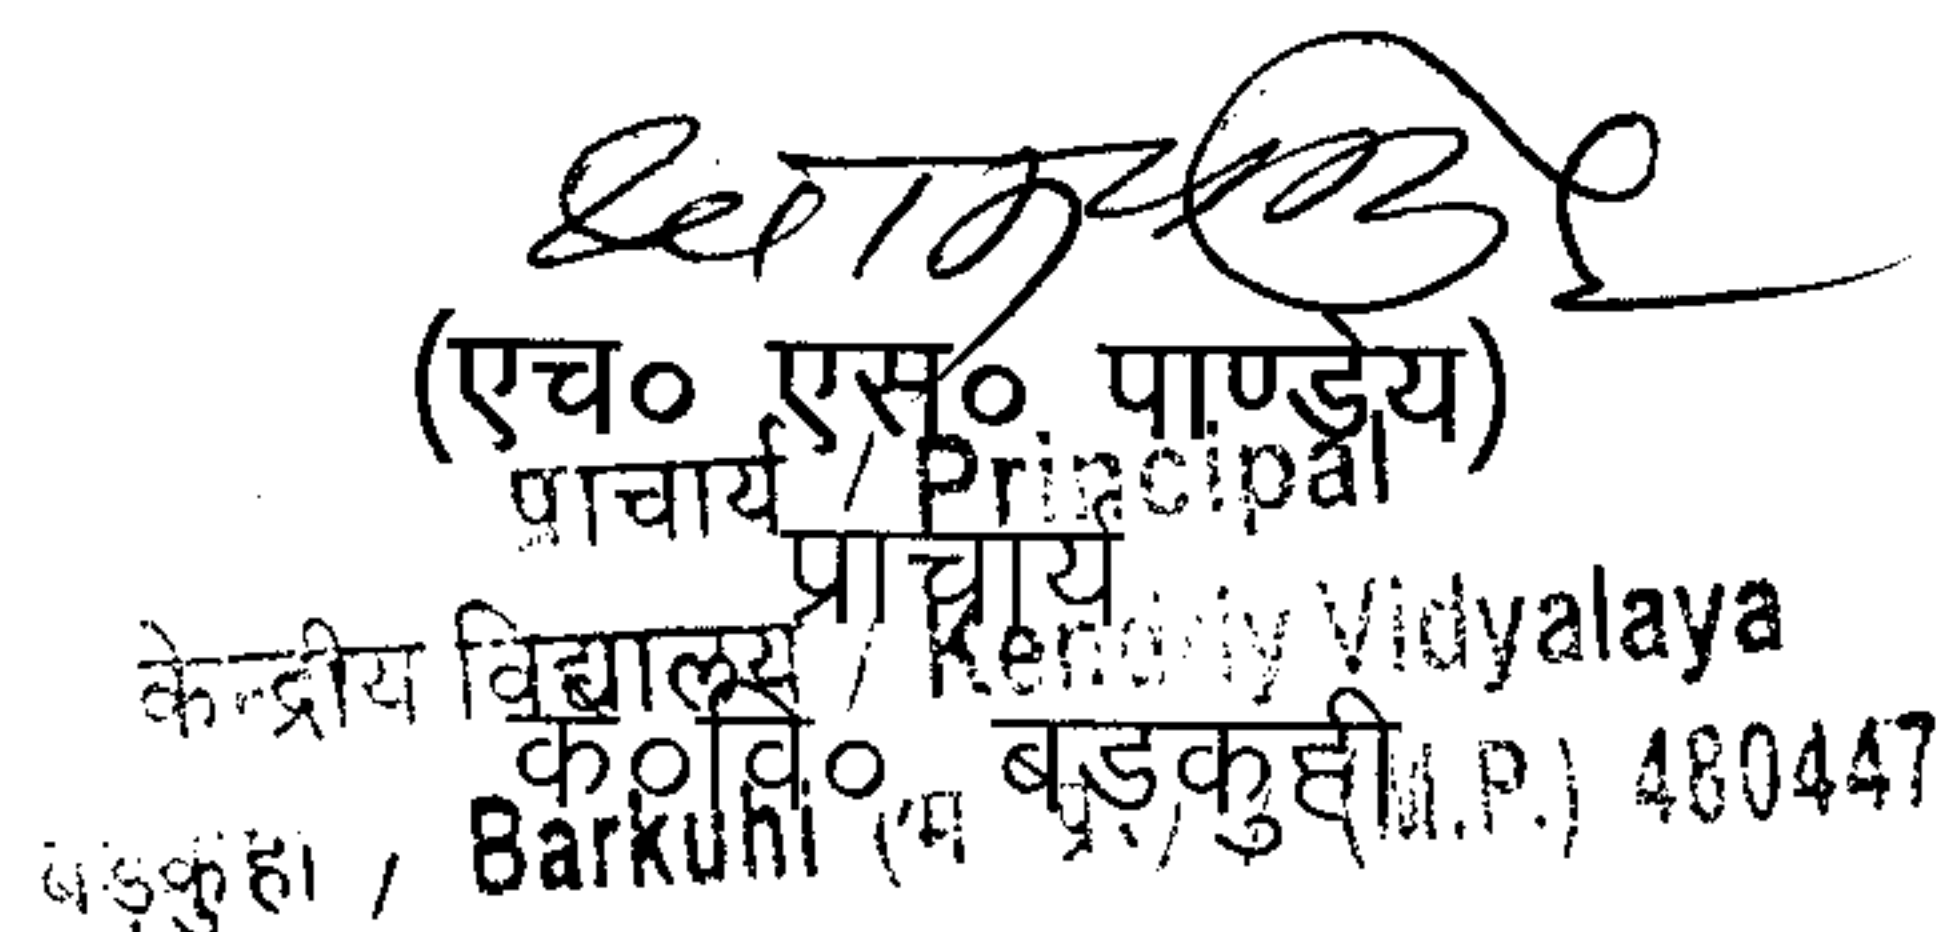 (एच० एस० पाण्डेय)
प्राचार्य / Principal
प्राचार्य
केन्द्रीय विद्यालय / Kendriy Vidyalaya
के०वि० बड़कुही
बड़कुही / Barkuhi (म.प्र.) / (M.P.) 480447